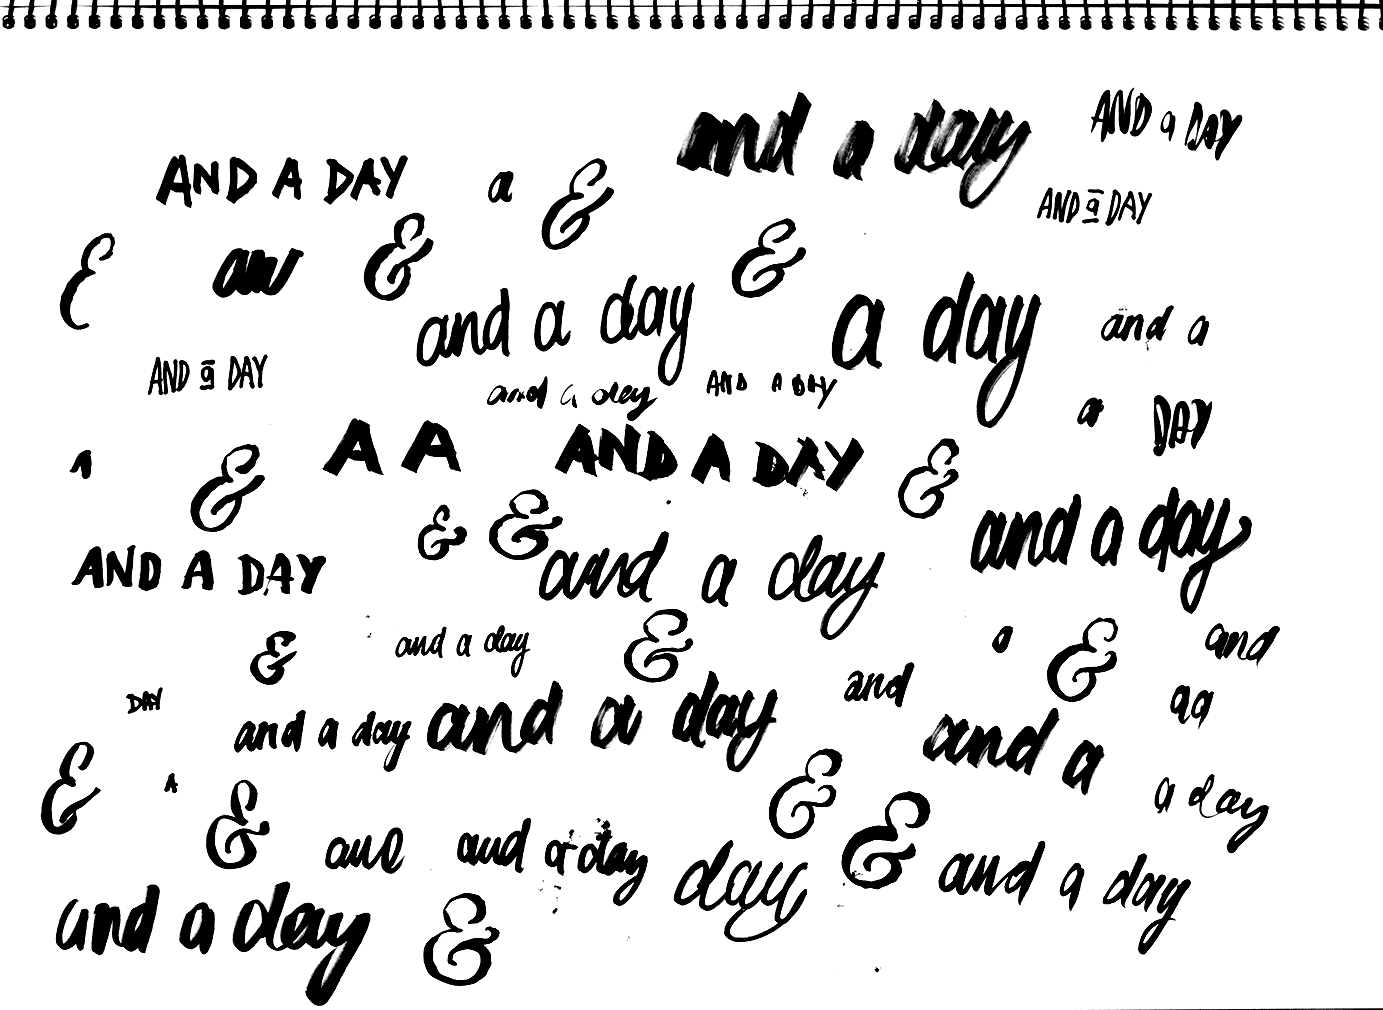 and a day AND a DAY
AND A DAY a &
AND a DAY
& &
and a day a day and a
AND a DAY and a day AND A DAY
a DAY
A A AND A DAY
& &
& & and a day
AND A DAY and a day
& and a day & a & and
DAY and a day and a day and aa
and a
& A & & a day
and a day day & and a day
and a day &